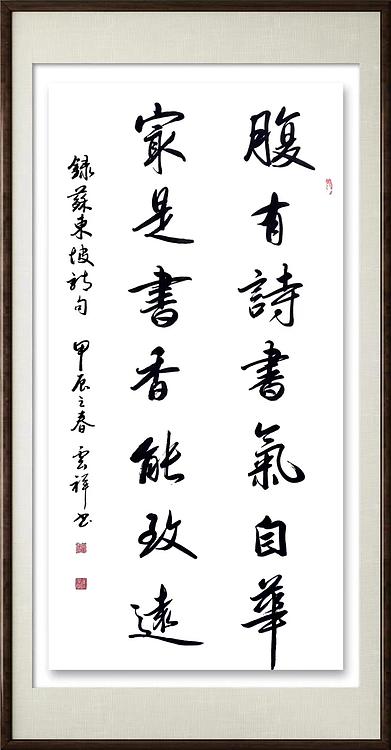 腹有詩書氣自華
寂是書香能致遠
録蘇東坡詩句 甲辰之春 雲祥书